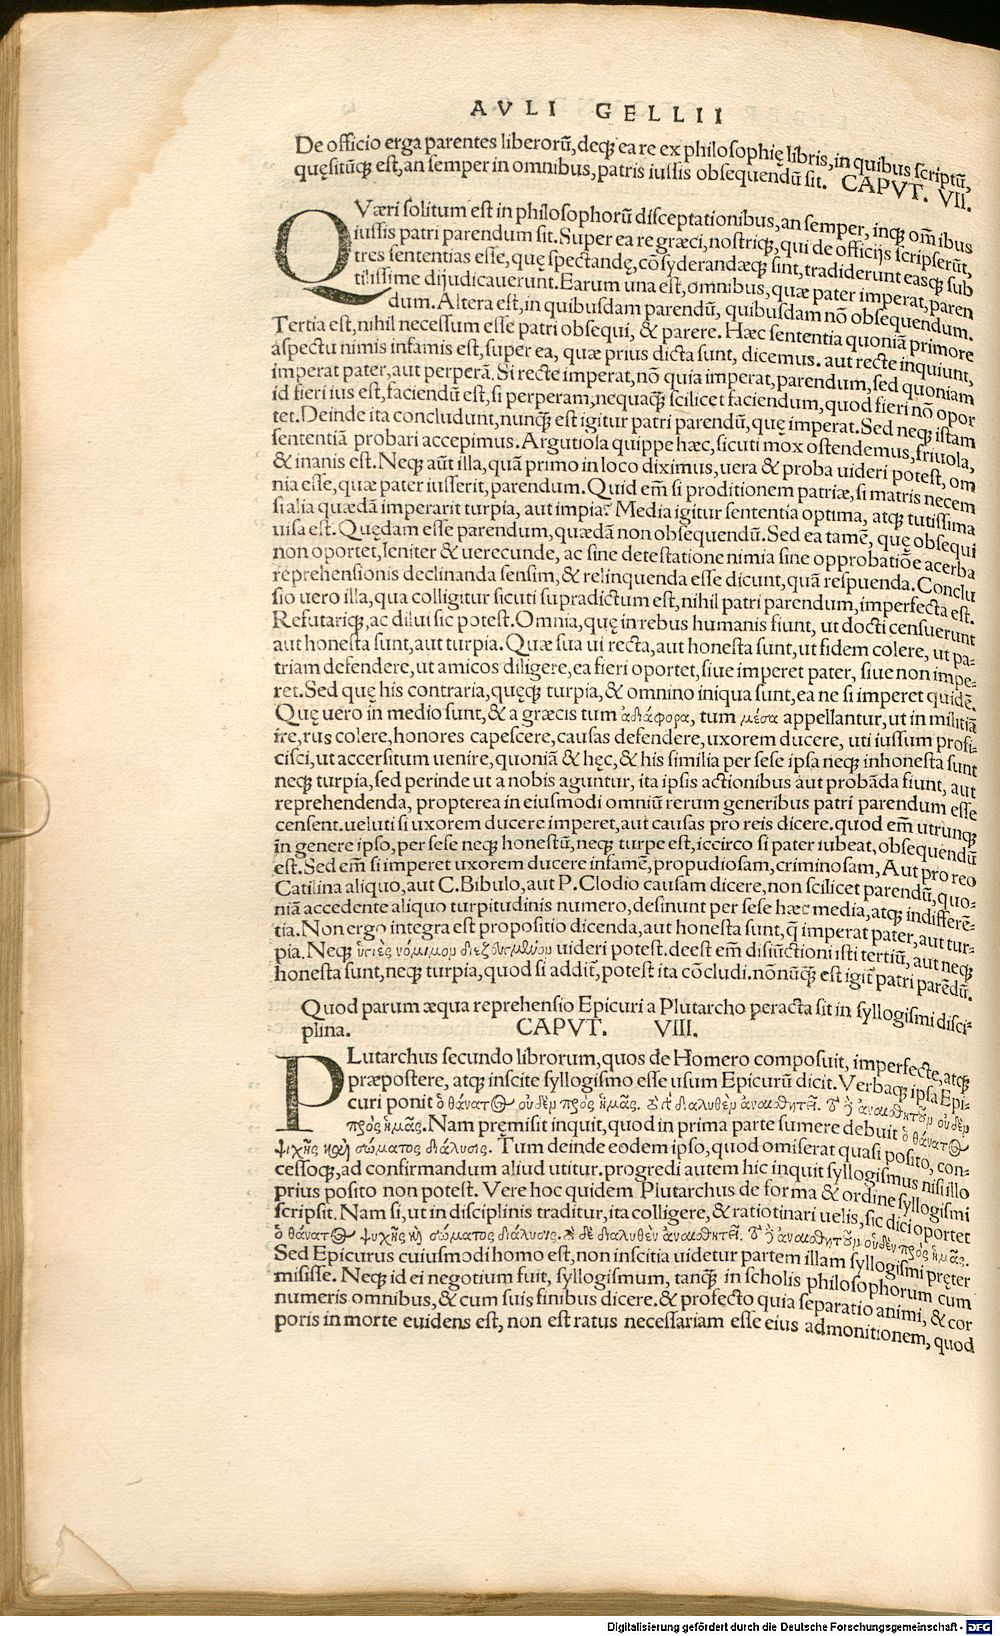 AVLI GELLII
De officio erga parentes liberorū, deqꝫ ea re ex philosophię libris, in quibus scriptū,
quęsitūqꝫ est, an semper in omnibus, patris iussis obsequendū sit. CAPVT. VII.
QVæri solitum est in philosophorū disceptationibus, an semper, inqꝫ om̄ibus
iussis patri parendum sit. Super ea re græci, nostriqꝫ, qui de officijs scripserūt,
tres sententias esse, quę spectandę, cōsyderandæqꝫ sint, tradiderunt easqꝫ sub
tilissime dijudicauerunt. Earum una est, omnibus, quæ pater imperat, paren
dum. Altera est, in quibusdam parendū, quibusdam nō obsequendum.
Tertia est, nihil necessum esse patri obsequi, & parere. Hæc sententia quoniā primore
aspectu nimis infamis est, super ea, quæ prius dicta sunt, dicemus. aut recte inquiunt,
imperat pater, aut perperā. Si recte imperat, nō quia imperat, parendum, sed quoniam
id fieri ius est, faciendū est, si perperam, nequaqꝫ̄ scilicet faciendum, quod fieri nō opor
tet. Deinde ita concludunt, nunqꝫ̄ est igitur patri parendū, quę imperat. Sed neqꝫ istam
sententiā probari accepimus. Argutiola quippe hæc, sicuti mox ostendemus, friuola,
& inanis est. Neqꝫ aūt illa, quā primo in loco diximus, uera & proba uideri potest, om
nia esse, quæ pater iusserit, parendum. Quid em̄ si proditionem patriæ, si matris necem
si alia quædā imperarit turpia, aut impia? Media igitur sententia optima, atqꝫ tutissima
uisa est. Quędam esse parendum, quædā non obsequendū. Sed ea tamē, quę obsequi
non oportet, leniter & uerecunde, ac sine detestatione nimia sine opprobatiōe acerba
reprehensionis declinanda sensim, & relinquenda esse dicunt, quā respuenda. Conclu
sio uero illa, qua colligitur sicuti supradictum est, nihil patri parendum, imperfecta est.
Refutariqꝫ, ac dilui sic potest. Omnia, quę in rebus humanis fiunt, ut docti censuerunt
aut honesta sunt, aut turpia. Quæ sua ui recta, aut honesta sunt, ut fidem colere, ut pa-
triam defendere, ut amicos diligere, ea fieri oportet, siue imperet pater, siue non impe-
ret. Sed quę his contraria, quęqꝫ turpia, & omnino iniqua sunt, ea ne si imperet quidē.
Quę uero in medio sunt, & a græcis tum ἀδιάφορα, tum μέσα appellantur, ut in militiā
ire, rus colere, honores capescere, causas defendere, uxorem ducere, uti iussum profi-
cisci, ut accersitum uenire, quoniā & hęc, & his similia per sese ipsa neqꝫ inhonesta sunt
neqꝫ turpia, sed perinde ut a nobis aguntur, ita ipsis actionibus aut probāda fiunt, aut
reprehendenda, propterea in eiusmodi omniū rerum generibus patri parendum esse
censent. ueluti si uxorem ducere imperet, aut causas pro reis dicere. quod em̄ utrunqꝫ
in genere ipso, per sese neqꝫ honestū, neqꝫ turpe est, iccirco si pater iubeat, obsequendū
est. Sed em̄ si imperet uxorem ducere infamē, propudiosam, criminosam, Aut pro reo
Catilina aliquo, aut C. Bibulo, aut P. Clodio causam dicere, non scilicet parendū, quo-
niā accedente aliquo turpitudinis numero, desinunt per sese hæc media, atqꝫ indifferē-
tia. Non ergo integra est propositio dicenda, aut honesta sunt, q̄ imperat pater, aut tur-
pia. Neqꝫ νόμιμον uideri potest. deest em̄ disiūctioni isti tertiū, aut neqꝫ
honesta sunt, neqꝫ turpia, quod si addit᷒, potest ita cōcludi. nōnūqꝫ̄ est igit᷒ patri parēdū.
Quod parum æqua reprehensio Epicuri a Plutarcho peracta sit in syllogismi disci-
plina. CAPVT. VIII.
PLutarchus secundo librorum, quos de Homero composuit, imperfecte, atqꝫ
præpostere, atqꝫ inscite syllogismo esse usum Epicurū dicit. Verbaqꝫ ipsa Epi-
curi ponit ὁ θάνατος οὐδὲν πρὸς ἡμᾶς. τὸ γὰρ διαλυθὲν ἀναισθητεῖ. τὸ δὲ ἀναισθητοῦν οὐδὲν
πρὸς ἡμᾶς. Nam pręmisit inquit, quod in prima parte sumere debuit ὁ θάνατος
ψυχῆς καὶ σώματος διάλυσις. Tum deinde eodem ipso, quod omiserat quasi posito, con-
cessoqꝫ, ad confirmandum aliud utitur. progredi autem hic inquit syllogismus nisi illo
prius posito non potest. Vere hoc quidem Plutarchus de forma & ordine syllogismi
scripsit. Nam si, ut in disciplinis traditur, ita colligere, & ratiotinari uelis, sic dici oportet
ὁ θάνατος ψυχῆς καὶ σώματος διάλυσις. τὸ δὲ διαλυθὲν ἀναισθητεῖ. τὸ δὲ ἀναισθητοῦν οὐδὲν πρὸς ἡμᾶς.
Sed Epicurus cuiusmodi homo est, non inscitia uidetur partem illam syllogismi pręter
misisse. Neqꝫ id ei negotium fuit, syllogismum, tanqꝫ̄ in scholis philosophorum cum
numeris omnibus, & cum suis finibus dicere. & profecto quia separatio animi, & cor
poris in morte euidens est, non est ratus necessariam esse eius admonitionem, quod
Digitalisierung gefördert durch die Deutsche Forschungsgemeinschaft - DFG